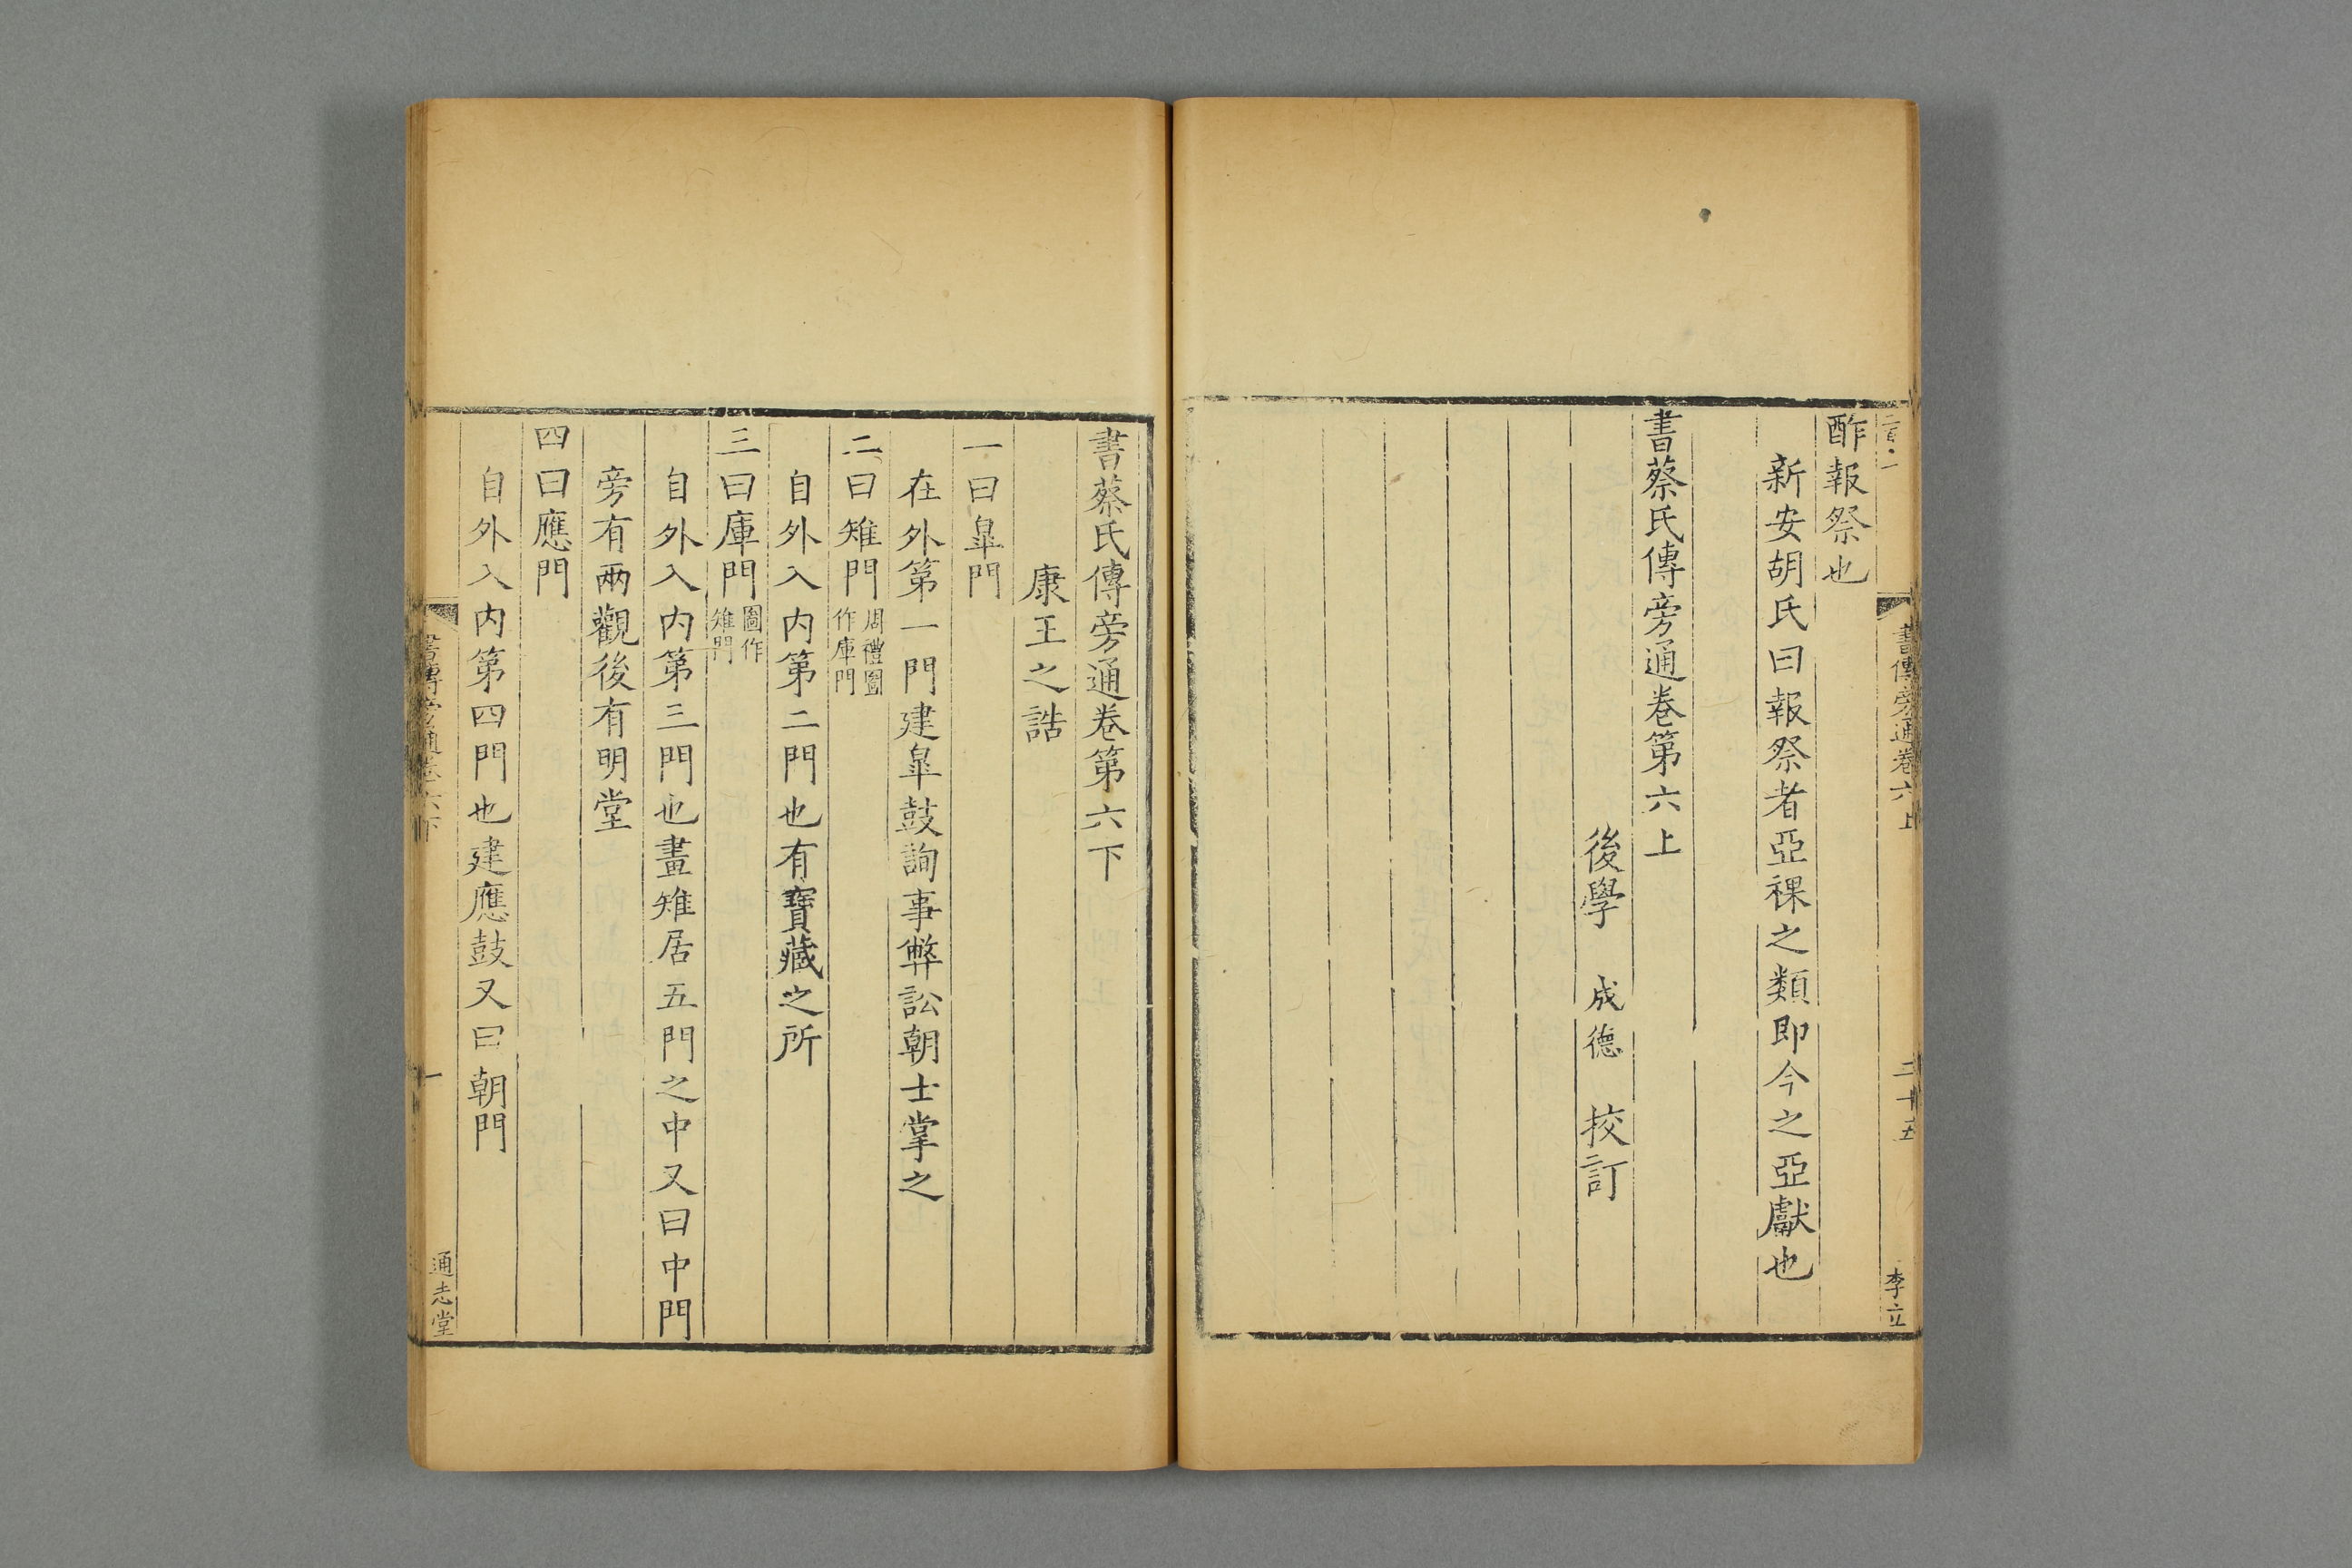 酢報祭也
新安胡氏曰報祭者亞祼之類即今之亞獻也
書蔡氏傳旁通卷第六上
後學 成德 挍訂
書傳旁通卷六上
三十五
李立
書蔡氏傳旁通卷第六下
康王之誥
一曰皐門
在外第一門建皐鼓詢事弊訟朝士掌之
二曰雉門周禮圖作庫門
自外入内第二門也有寶藏之所
三曰庫門圖作雉門
自外入内第三門也畫雉居五門之中又曰中門
旁有兩觀後有明堂
四曰應門
自外入内第四門也建應鼓又曰朝門
書傳旁通卷六下
一
通志堂